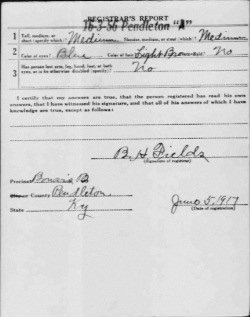 REGISTRAR'S REPORT
16-3-56 Pendleton "A"
1 Tall, medium, or short (specify which)? Medium Slender, medium, or stout (which)? Medium
2 Color of eyes? Blue Color of hair? Light Brown No
3 Has person lost arm, leg, hand, foot, or both eyes, or is he otherwise disabled (specify)? No
I certify that my answers are true, that the person registered has read his own
answers, that I have witnessed his signature, and that all of his answers of which I have
knowledge are true, except as follows:
B. H. Fields
(Signature of registrar)
Precinct
County Pendleton
State Ky
June 5, 1917
(Date of registration)